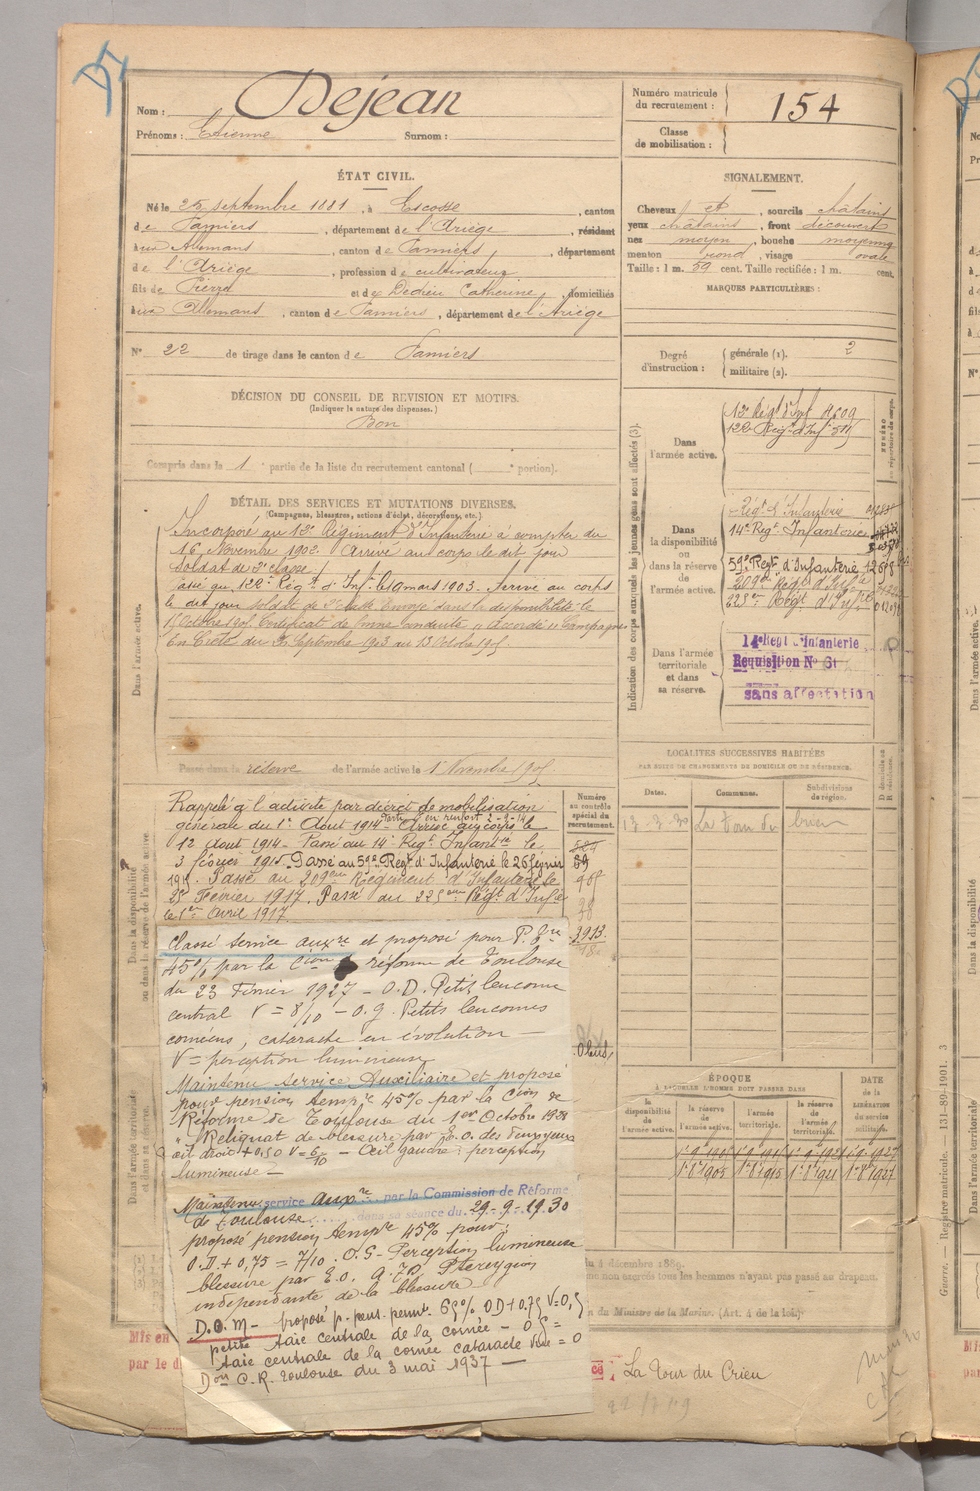 Nom : Dejean
Prénoms : Etienne Surnom :
Numéro matricule
du recrutement : 154
Classe
de mobilisation :
ÉTAT CIVIL.
Né le 25 septembre 1881, à Escosse, canton
de Pamiers, département de l'Ariège, résidant
aux Allemans, canton de Pamiers, département
de l'Ariège, profession de cultivateur
fils de Pierre et de Dedieu Catherine, domiciliés
aux Allemans, canton de Pamiers, département de l'Ariège
N° 22 de tirage dans le canton de Pamiers
SIGNALEMENT.
Cheveux et, sourcils châtains
yeux châtains, front découvert
nez moyen, bouche moyenne
menton rond, visage ovale
Taille : 1 m. 59 cent. Taille rectifiée : 1 m. cent.
MARQUES PARTICULIÈRES :
Degré
d'instruction :
générale (1). 2
militaire (2).
DÉCISION DU CONSEIL DE REVISION ET MOTIFS.
(Indiquer la nature des dispenses.)
Bon
Compris dans la 1 partie de la liste du recrutement cantonal ( portion).
DÉTAIL DES SERVICES ET MUTATIONS DIVERSES.
(Campagnes, blessures, actions d'éclat, décorations, etc.)
Dans l'armée active.
Incorporé au 12e Régiment d'Infanterie à compter du
16 Novembre 1902. Arrivé au corps le dit jour
soldat de 2e classe.
Passé au 122e Régt d'Inf le 10 mars 1903. Arrivé au corps
le dit jour soldat de 2e classe Envoyé dans la disponibilité le
Octobre 1905 Certificat de bonne conduite "Accordé" Campagnes
En Crète du Septembre 1903 au 13 Octobre 1905
Passé dans la réserve de l'armée active le 1 Novembre 1905
Indication des corps auxquels les jeunes gens sont affectés (3).
NUMÉRO
au répertoire du corps.
Dans
l'armée active.
Régt d'Inf
122e Régt d'Inf
Dans
la disponibilité
ou dans
la réserve
de
l'armée active.
Régt d'Infanterie
14e Régt Infanterie
59e Regt d'Infanterie
209eme Régt d'Infie
225eme Régt d'Infie
Dans l'armée
territoriale
et dans
sa réserve.
14e Regt d'Infanterie
Requisition N° 6
sans affectation
Dans la disponibilité
ou dans la réserve de l'armée active
Rappelé à l'activité par décret de mobilisation
Parti en renfort 2-9-14
générale du 1er Aout 1914 Arrivé au corps le
12 Aout 1914 - Passé au 14e Régt Infanterie le
3 février 1915. Passé au 59e Regt d'Infanterie le 26 février
1915. Passé au 209eme Régiment d'Infanterie le
25 Février 1917. Passé au 225eme Régt d'Infie
le 1er Avril 1917
Numéro
au contrôle
spécial du
recrutement.
LOCALITÉS SUCCESSIVES HABITÉES
PAR SUITE DE CHANGEMENTS DE DOMICILE OU DE RÉSIDENCE.
Dates.
Communes.
Subdivisions
de région.
D domicile ou
R résidence.
La Tour du Crieu
Dans l'armée territoriale
et dans sa réserve.
Classé service auxre et proposé pour P. Tre
45% par la Cion réforme de Toulouse
du 23 Février 1927 - O.D. Petit leucome
central V = 8/10 - O.G. Petits leucomes
cornéens, cataracte en évolution -
V = perception lumineuse
Maintenu service Auxiliaire et proposé
pour pension tempre 45% par la Cion de
Réforme de Toulouse du 1er Octobre 1928
"Reliquat de blessure par E.O. des deux yeux
œil droit + 0,50 V = 6/10 - Œil gauche : perception
lumineuse -
Maintenu service Auxre par la Commission de Réforme
de Toulouse dans sa séance du 29-9-1930
proposé pension tempre 45% pour :
O.D. + 0,75 = 7/10. O.G - Perception lumineuse
blessure par E.O. Pterygion
indépendante de la blessure
D.O.M - proposé p. pens. permte. 65% OD + 0,75 V=0,5
petite taie centrale de la cornée - O G =
taie centrale de la cornée cataracte Vue = 0
Don C.R. Toulouse du 3 mai 1937 -
ÉPOQUE
À LAQUELLE L'HOMME DOIT PASSER DANS
la
disponibilité
de
l'armée active.
la réserve
de
l'armée active.
l'armée
territoriale.
la réserve
de
l'armée
territoriale.
DATE
de la
LIBÉRATION
du service
militaire.
1er 8bre 1905 1er 8bre 1915 1er 8bre 1921 1er 8bre 1927
du 4 décembre 1889.
me non exercés tous les hommes n'ayant pas passé au drapeau.
n du Ministre de la Marine. (Art. 4 de la loi.)
Mis en
par le d
La Tour du Crieu
Guerre. — Registre matricule. — 131-89-1901. 3